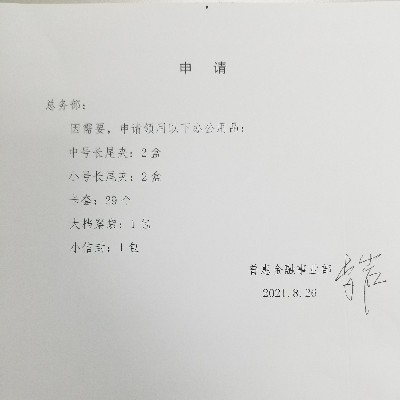 申 请
总务部：
因需要，申请领用以下办公用品：
中号长尾夹：2盒
小号长尾夹：2盒
卡套：29个
大档案袋：1包
小信封：1包
普惠金融事业部
2021.8.26